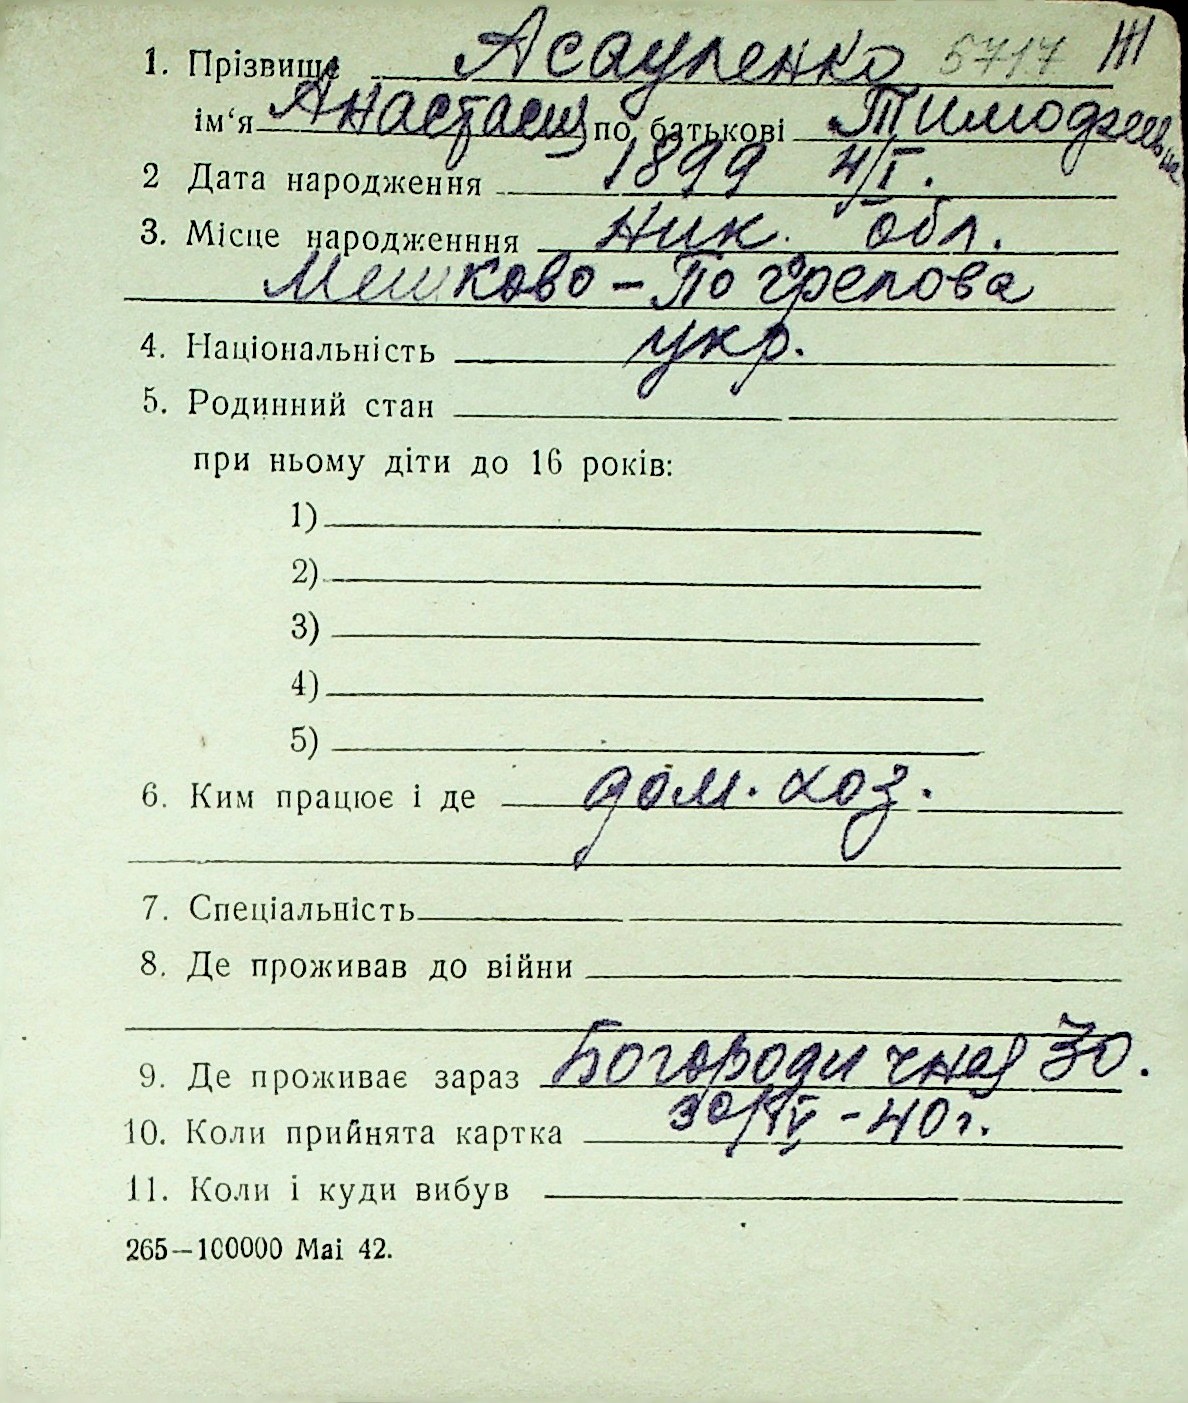 1. Прізвище Асауленко 5717 Ж
ім'я Анастасия по батькові Тимофеевна
2 Дата народження 1899 4/I.
3. Місце народженння Ник. обл.
Мешково-Погрелова
4. Національність укр.
5. Родинний стан
при ньому діти до 16 років:
1)
2)
3)
4)
5)
6. Ким працює і де дом. хоз.
7. Спеціальність
8. Де проживав до війни
9. Де проживає зараз Богородичная 30.
10. Коли прийнята картка -40 г.
11. Коли і куди вибув
265—100000 Mai 42.